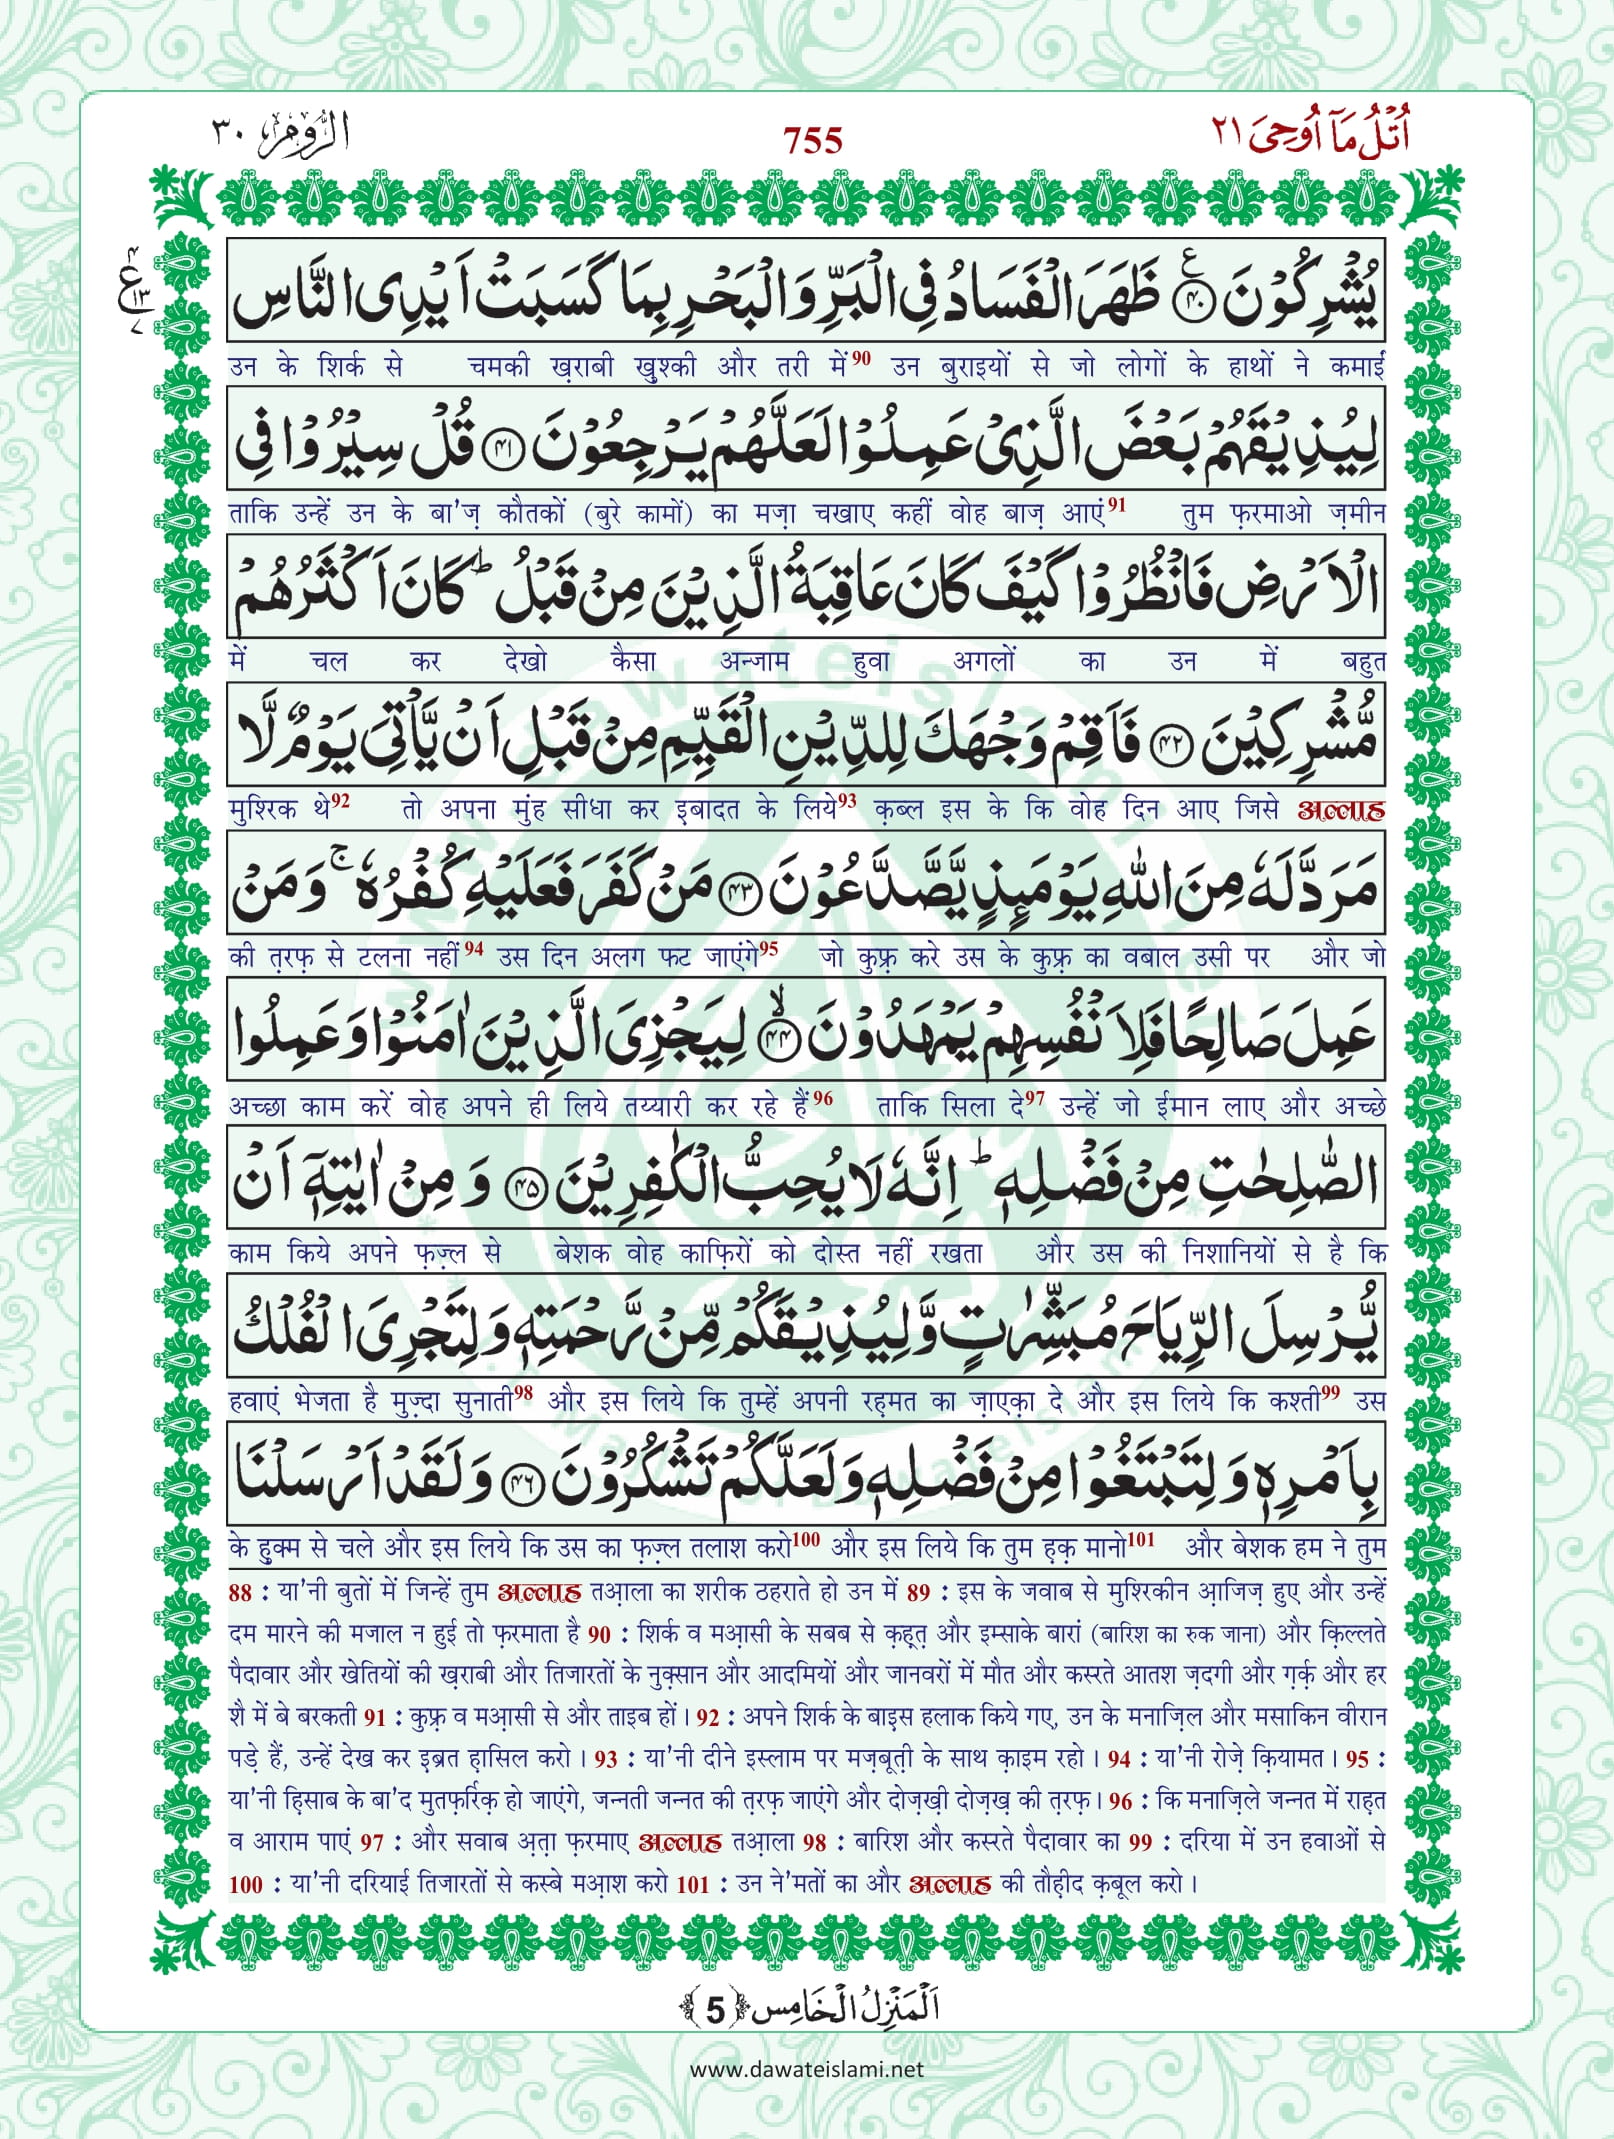 الرُّوۡم ٣٠
755
اُتۡلُ مَاۤ اُوۡحِیَ ٢١
ع ٤ ١٣ ٧
یُشۡرِكُوۡنَ ﴿٤٠﴾ ظَهَرَ الۡفَسَادُ فِی الۡبَرِّ وَ الۡبَحۡرِ بِمَا كَسَبَتۡ اَیۡدِی النَّاسِ
उन के शिर्क से चमकी ख़राबी खुश्की और तरी में90 उन बुराइयों से जो लोगों के हाथों ने कमाईं
لِیُذِیۡقَهُمۡ بَعۡضَ الَّذِیۡ عَمِلُوۡا لَعَلَّهُمۡ یَرۡجِعُوۡنَ ﴿٤١﴾ قُلۡ سِیۡرُوۡا فِی
ताकि उन्हें उन के बा'ज़ कौतकों (बुरे कामों) का मज़ा चखाए कहीं वोह बाज़ आएं91 तुम फ़रमाओ ज़मीन
الۡاَرۡضِ فَانۡظُرُوۡا كَیۡفَ كَانَ عَاقِبَةُ الَّذِیۡنَ مِنۡ قَبۡلُ ؕ كَانَ اَكۡثَرُهُمۡ
में चल कर देखो कैसा अन्जाम हुवा अगलों का उन में बहुत
مُّشۡرِكِیۡنَ ﴿٤٢﴾ فَاَقِمۡ وَجۡهَكَ لِلدِّیۡنِ الۡقَیِّمِ مِنۡ قَبۡلِ اَنۡ یَّاۡتِیَ یَوۡمٌ لَّا
मुश्रिक थे92 तो अपना मुंह सीधा कर इबादत के लिये93 क़ब्ल इस के कि वोह दिन आए जिसे अल्लाह
مَرَدَّ لَهٗ مِنَ اللّٰهِ یَوۡمَئِذٍ یَّصَّدَّعُوۡنَ ﴿٤٣﴾ مَنۡ كَفَرَ فَعَلَیۡهِ كُفۡرُهٗ ۚ وَ مَنۡ
की त़रफ़ से टलना नहीं94 उस दिन अलग फट जाएंगे95 जो कुफ़्र करे उस के कुफ़्र का वबाल उसी पर और जो
عَمِلَ صَالِحًا فَلِاَنۡفُسِهِمۡ یَمۡهَدُوۡنَ ﴿٤٤﴾ۙ لِیَجۡزِیَ الَّذِیۡنَ اٰمَنُوۡا وَ عَمِلُوا
अच्छा काम करें वोह अपने ही लिये तय्यारी कर रहे हैं96 ताकि सिला दे97 उन्हें जो ईमान लाए और अच्छे
الصّٰلِحٰتِ مِنۡ فَضۡلِهٖ ؕ اِنَّهٗ لَا یُحِبُّ الۡكٰفِرِیۡنَ ﴿٤٥﴾ وَ مِنۡ اٰیٰتِهٖۤ اَنۡ
काम किये अपने फ़ज़्ल से बेशक वोह काफ़िरों को दोस्त नहीं रखता और उस की निशानियों से है कि
یُّرۡسِلَ الرِّیَاحَ مُبَشِّرٰتٍ وَّ لِیُذِیۡقَكُمۡ مِّنۡ رَّحۡمَتِهٖ وَ لِتَجۡرِیَ الۡفُلۡكُ
हवाएं भेजता है मुज़्दा सुनाती98 और इस लिये कि तुम्हें अपनी रह़मत का ज़ाएक़ा दे और इस लिये कि कश्ती99 उस
بِاَمۡرِهٖ وَ لِتَبۡتَغُوۡا مِنۡ فَضۡلِهٖ وَ لَعَلَّكُمۡ تَشۡكُرُوۡنَ ﴿٤٦﴾ وَ لَقَدۡ اَرۡسَلۡنَا
के हु़क्म से चले और इस लिये कि उस का फ़ज़्ल तलाश करो100 और इस लिये कि तुम ह़क़ मानो101 और बेशक हम ने तुम
88 : या'नी बुतों में जिन्हें तुम अल्लाह तआ़ला का शरीक ठहराते हो उन में 89 : इस के जवाब से मुश्रिकीन आ़जिज़ हुए और उन्हें
दम मारने की मजाल न हुई तो फ़रमाता है 90 : शिर्क व मआ़सी के सबब से क़ह़्त़ और इम्साके बारां (बारिश का रुक जाना) और क़िल्लते
पैदावार और खेतियों की ख़राबी और तिजारतों के नुक़्सान और आदमियों और जानवरों में मौत और कस्रते आतश ज़दगी और ग़र्क़ और हर
शै में बे बरकती 91 : कुफ़्र व मआ़सी से और ताइब हों। 92 : अपने शिर्क के बाइस हलाक किये गए, उन के मनाज़िल और मसाकिन वीरान
पड़े हैं, उन्हें देख कर इ़ब्रत ह़ासिल करो। 93 : या'नी दीने इस्लाम पर मज़बूत़ी के साथ क़ाइम रहो। 94 : या'नी रोज़े क़ियामत। 95 :
या'नी हि़साब के बा'द मुतफ़र्रिक़ हो जाएंगे, जन्नती जन्नत की त़रफ़ जाएंगे और दोज़ख़ी दोज़ख़ की त़रफ़। 96 : कि मनाज़िले जन्नत में राह़त
व आराम पाएं 97 : और सवाब अ़त़ा फ़रमाए अल्लाह तआ़ला 98 : बारिश और कस्रते पैदावार का 99 : दरिया में उन हवाओं से
100 : या'नी दरियाई तिजारतों से कस्बे मआ़श करो 101 : उन ने'मतों का और अल्लाह की तौह़ीद क़बूल करो।
اَلۡمَنۡزِلُ الۡخَامِس ﴿5﴾
www.dawateislami.net